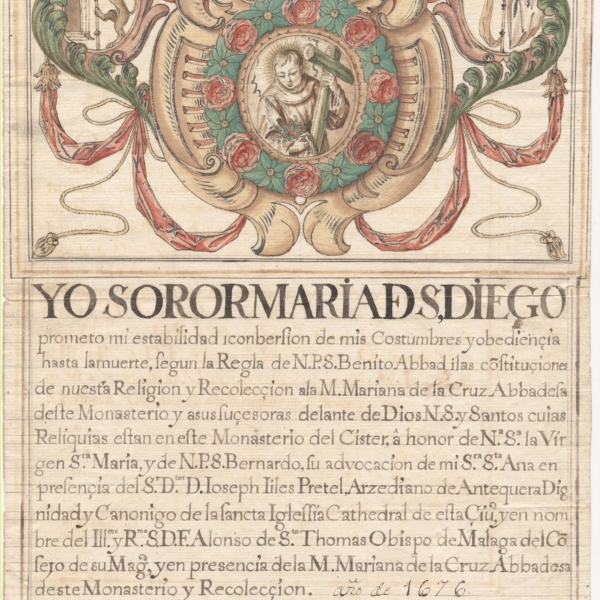 YO SOROR MARIA D S, DIEGO
prometo mi estabilidad iconbersion de mis Costumbres y obediençia
hasta lamuerte, segun la Regla de N.P.S. Benito Abbad, ilas cõstituciones
de nuestra Religion y Recolecçion ala M. Mariana de la Cruz Abbadesa
deste Monasterio y asus suçesoras delante de Dios N.S. y Santos cuias
Reliquias estan en este Monasterio del Cister, â honor de Nª. Sª. la Vir
gen Sᵗᵃ. Maria, y de N.P.S. Bernardo, su advocacion de mi Sʳᵃ. Sᵗᵃ. Ana en
presençia del Sʳ. Dᵗᵒʳ. D. Ioseph Iiles Pretel, Arzediano de Antequera Dig
nidad y Canonigo de la sancta Iglessia Cathedral de esta Çiuᵈ, yen nom
bre del Illᵐᵒ y Rᵐᵒ S. D. F. Alonso de Sᵗᵒ Thomas Obispo de Malaga del Cõ
sejo de su Magᵈ, y en presencia dela M. Mariana de la Cruz Abbadesa
deste Monasterio y Recolecçion. año de 1676